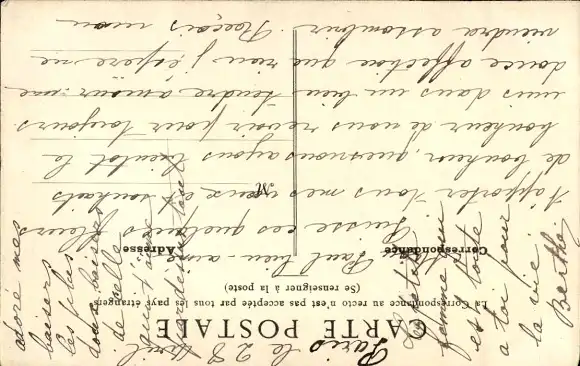 CARTE POSTALE
La Correspondance au recto n'est pas acceptée par tous les pays étrangers
(Se renseigner à la poste)
Correspondance
Adresse
M
Paris le 28 Avril
Paul bien aimé
Puisse ces quelques fleurs
t'apporter tous mes vœux et souhaits
de bonheur, que nous ayons bientôt le
bonheur de nous revoir pour toujours
unis dans un bien tendre amour une
douce affection que rien j'espère ne
viendra assombrir. Reçois mon
adoré mes
baisers
les plus
doux baisers
de celle
qui t'aime
tout
La petite
femme qui
est toute
a toi pour
la vie
Berthe